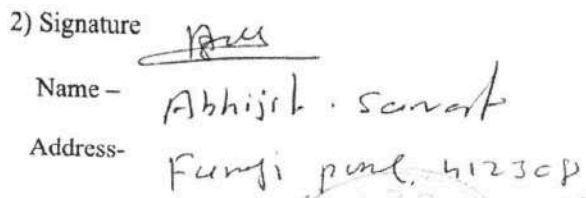 2) Signature
Name – Abhijit . Sawant
Address- Fursungi pune, 412308